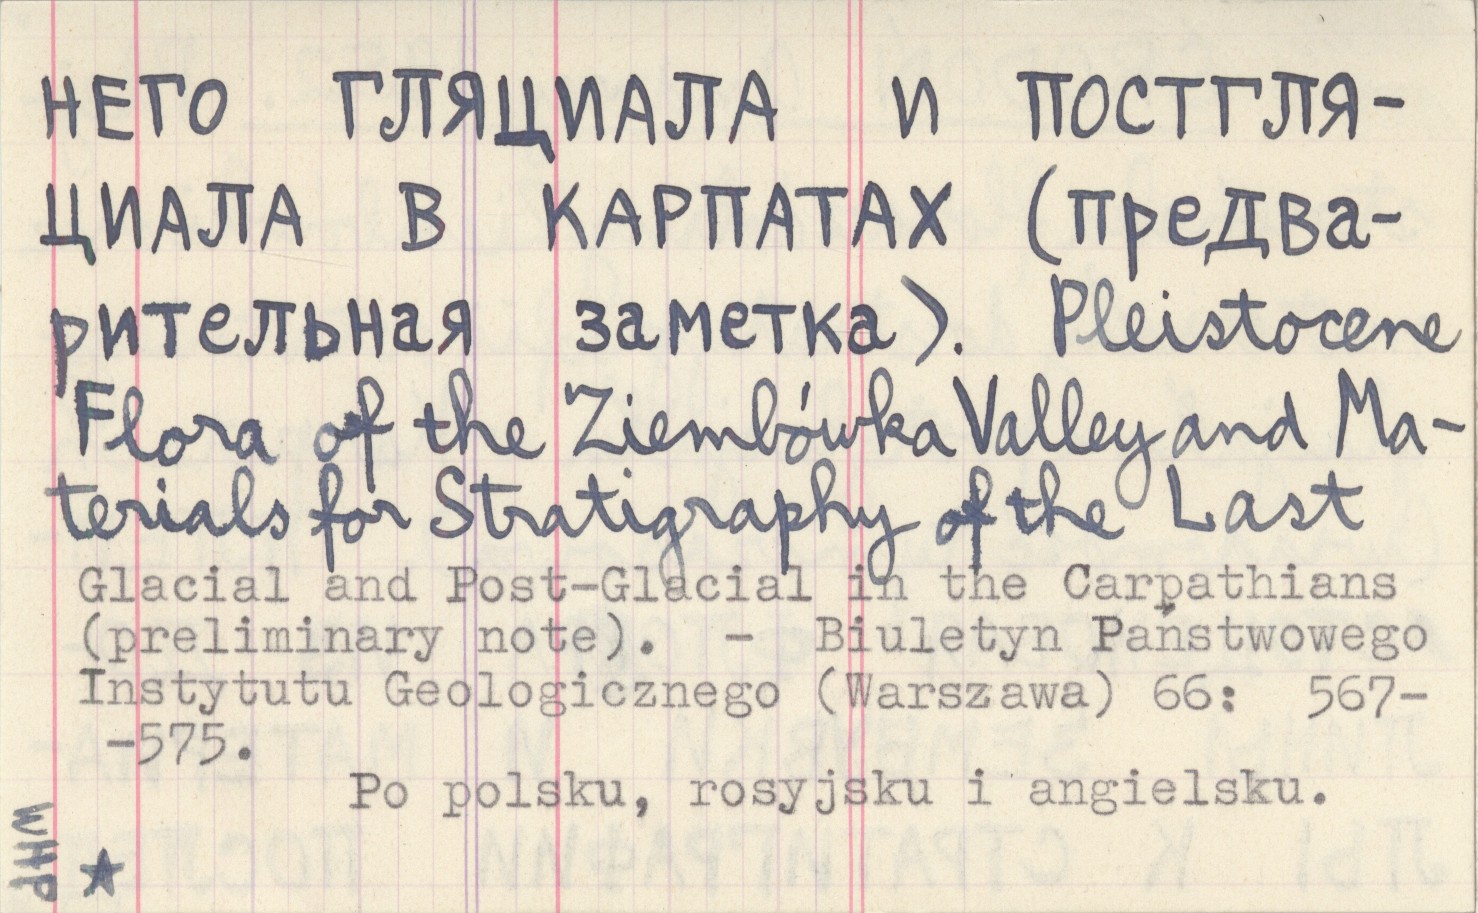 НЕГО ГЛЯЦИАЛА И ПОСТГЛЯ-
ЦИАЛА В КАРПАТАХ (предва-
рительная заметка). Pleistocene
Flora of the Ziembówka Valley and Ma-
terials for Stratigraphy of the Last
Glacial and Post-Glacial in the Carpathians
(preliminary note). - Biuletyn Państwowego
Instytutu Geologicznego (Warszawa) 66: 567-
-575.
Po polsku, rosyjsku i angielsku.
WHP